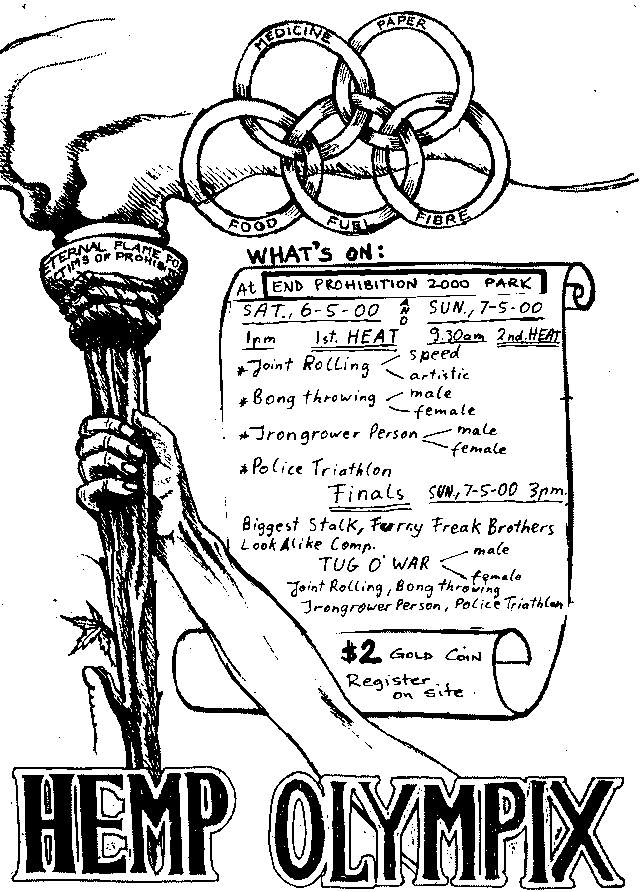 MEDICINE
PAPER
FOOD
FUEL
FIBRE
TERNAL FLAME FO
TIMS OF PROHIBI
WHAT'S ON:
At END PROHIBITION 2000 PARK
SAT., 6-5-00 AND SUN., 7-5-00
1pm 1st. HEAT 9.30am 2nd. HEAT
* Joint Rolling speed
artistic
* Bong throwing male
female
* Irongrower Person male
female
* Police Triathlon
Finals SUN, 7-5-00 3pm.
Biggest Stalk, Furry Freak Brothers
Look Alike Comp.
TUG O' WAR male
female
Joint Rolling, Bong throwing
Irongrower Person, Police Triathlon
$2 GOLD COIN
Register
on site
HEMP OLYMPIX